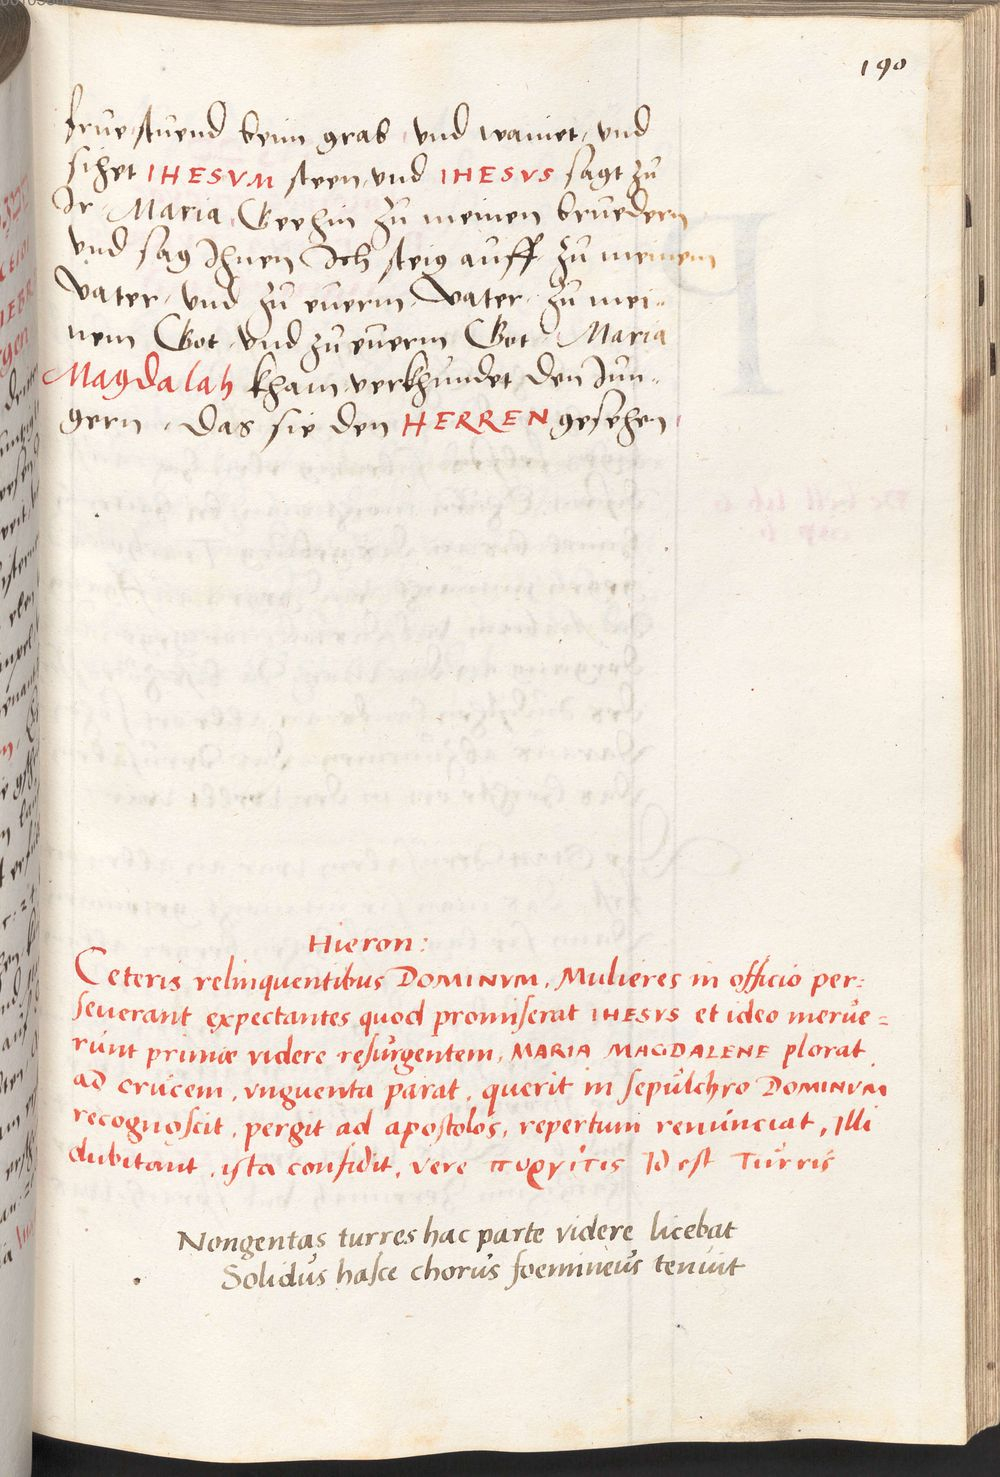 190
frue stuend beim grab, vnd wainet, vnd
sihet IHESVM steen, vnd IHESVS sagt zu
Ir Maria, Geehin zu meinen bruedern
vnd sag Ihnen Ich steig auff zu meinem
vater, vnd zu euerm Vater, zu mei-
nem Got, vnd zu euerm Got, Maria
Magdalah kham, verkhundet den Jun-
gern, das sie den HERREN gesehen,
Hieron:
Ceteris relinquentibus DOMINVM, Mulieres in officio per:
seuerant expectantes quod promiserat IHESVS et ideo merue=
runt primæ videre resurgentem, MARIA MAGDALENE plorat
ad crucem, vnguenta parat, querit in sepulchro DOMINVM
recognoscit, pergit ad apostolos, repertum renunciat, Illi
dubitant, ista confidit, vere πυργίτις Id est Turris
Nongentas turres hac parte videre licebat
Solidus hasce chorus foemineus tenuit